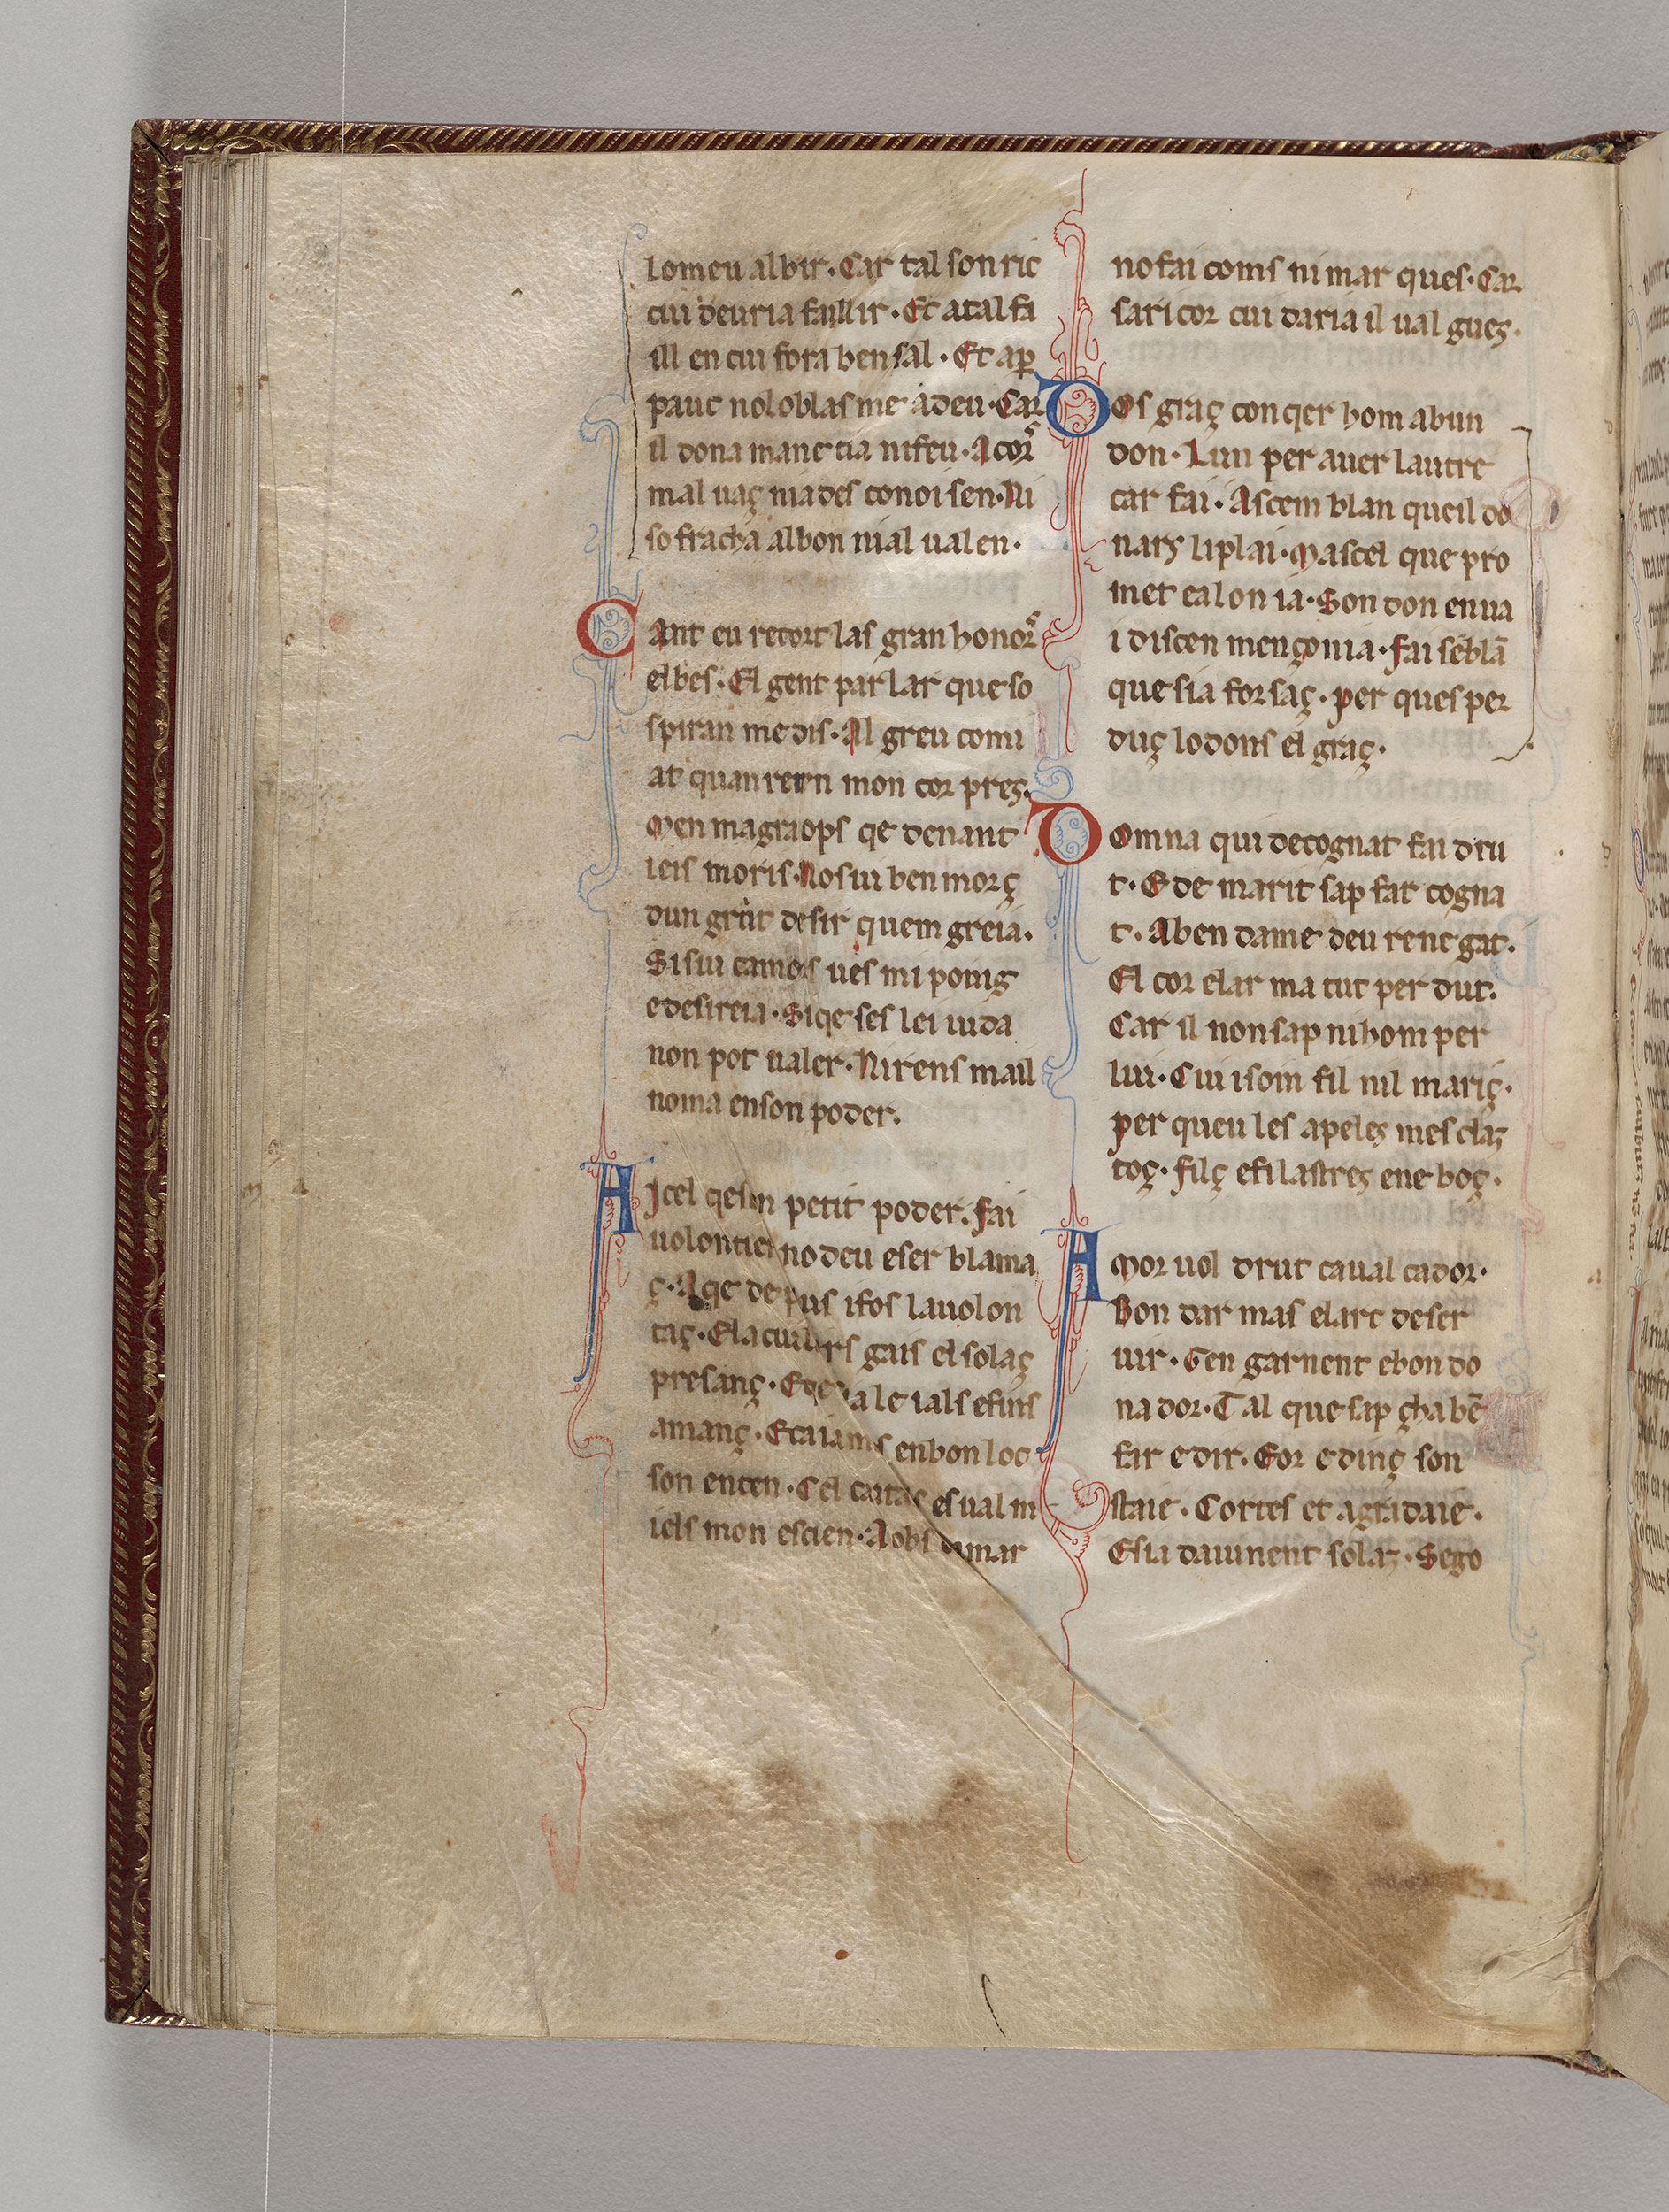 lo meu albir. Car tal son ric
cui deuria faillir. Et a tal fa
ill en cui fora ben sal. Et ap̱
pauc nolo blasme a deu. Car
il dona manetia ni feu. A cors
maluaç ni a des conoisen. Ni
sofracha al bon ni al ualen.
Cant eu recort las gran honors
el bes. El gent parlar que so
spiran me dis. Al greu comi
at quan mon cor pres.
Men magra ops qe denant
ieis moris. No sui ben morç
dun desir quem greia.
Si sui camors ues mi poing
e desireia. Si qe ses lei iuda
non pot ualer. Ni rens mail
noma en son poder.
Aicel qes petit poder. Fai
uolontiei no deu eser blama
ç. A qe de pus ifos la uolon
taç. El a gais el solaç
presanç. E ale ials e fins
amanç. Et aiams en bon loc
son enten. Cel es ual m
iels mon escien. A obs damar
no fai coms ni mar ques. Car
sa ricor cui daria il ual gues.
Dos graç conqer hom ab un
don. Lun per auer lautre
car fai. Ascem blan queil do
nars li plai. Mas cel que pro
met e alonia. Son don en ua
i discen mençonia. Fai sēblā
que sia forsaç. per ques per
duç lo dons el graç.
Domna qui de cognat fai dru
t. E de marit sap far cogna
t. A ben dame deu renegat.
El cor el ar ma tut perdut.
Car il non sap ni hom per
lui. Cui isoin fil nil mariç.
per queu les apeles mes claz
toç. Filç e filastres eneboç.
Amor uol drut caual cador.
Bon dar mas e larc de ser
uir. Gen garnent e bon do
nador. Tal que sap çha bē
far e dir. For e dinç son
staie. Cortes et agradaie.
E sia dauinent solaz. Sego